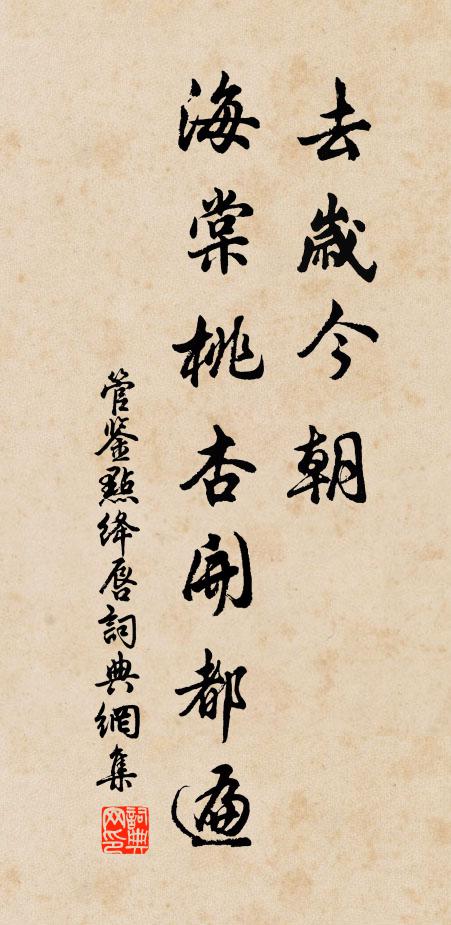 去歲今朝
海棠桃杏開都遍
管鉴點绛唇詞典網集
詞典
网印